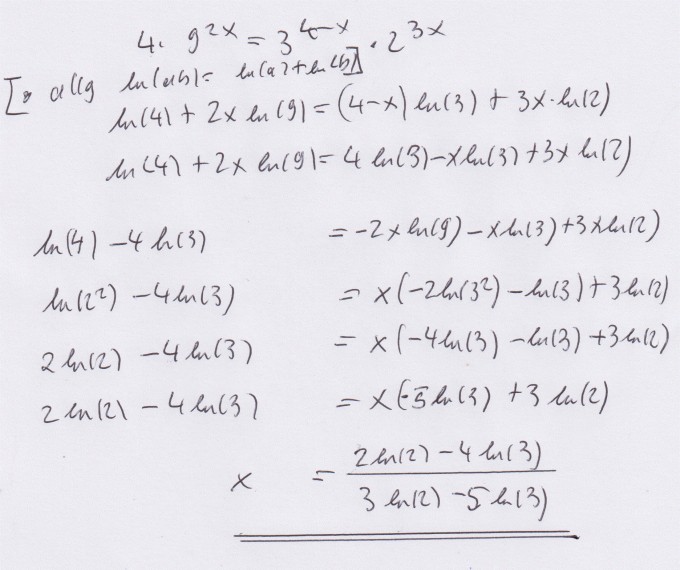 4 · 9^2x = 3^4-x · 2^3x
[allg ln(ab) = ln(a) + ln(b)]
ln(4) + 2x ln(9) = (4-x) ln(3) + 3x · ln(2)
ln(4) + 2x ln(9) = 4 ln(3) - x ln(3) + 3x ln(2)
ln(4) - 4 ln(3) = -2x ln(9) - x ln(3) + 3x ln(2)
ln(2²) - 4 ln(3) = x(-2 ln(3²) - ln(3) + 3 ln(2)
2 ln(2) - 4 ln(3) = x(-4 ln(3) - ln(3) + 3 ln(2)
2 ln(2) - 4 ln(3) = x(-5 ln(3) + 3 ln(2)
x = (2 ln(2) - 4 ln(3)) / (3 ln(2) - 5 ln(3))